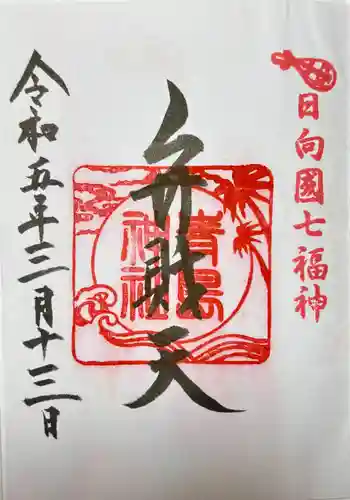 日向國七福神
弁財天
青島
神社
令和五年三月十三日